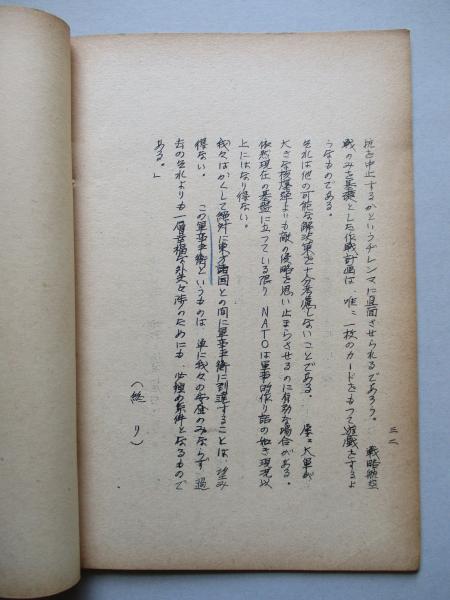 三二
抗を中止するかというヂレンマに直面させられるであろう。 戦略航空
戦のみを基礎とした作戦計画は、唯一枚のカードをもつて遊戯をするよ
うなものである。
それは他の可能な解決策を十分考慮しないことである。 大軍が
大きな核爆弾よりも敵の侵略を思い止まらせるのに有効な場合がある。
依然現在の基盤に立つている限り NATOは軍事的作り話の如き現況以
上にはなり得ない。
我々はかくして絶対に東方諸国との間に軍事平衡に到達することは、望み
得ない。 この軍事平衡というものは 単に我々の安全のみならず 過
去のそれよりも一層幸福な外交々渉のためにも、必須の条件となるもので
ある。」
(終り)